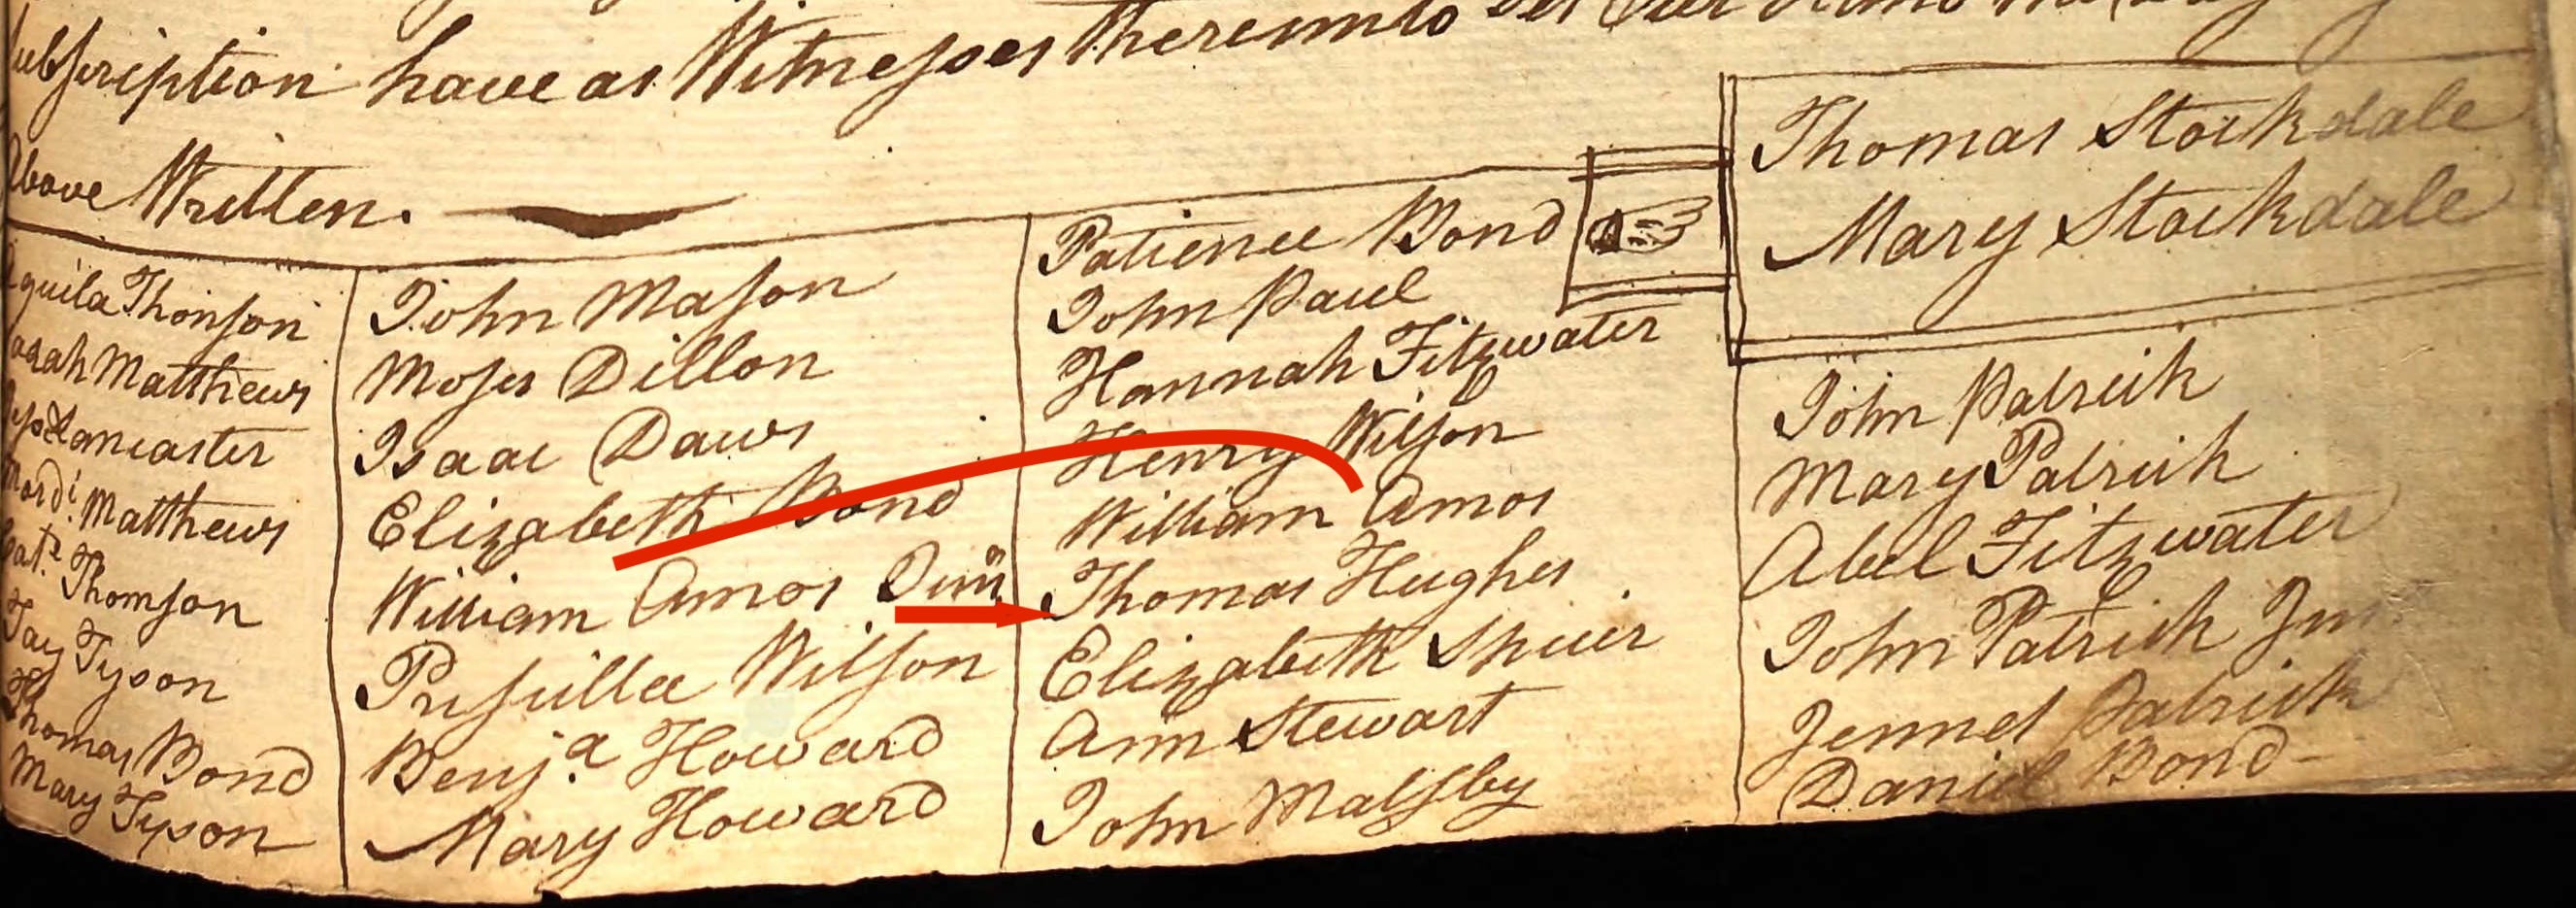 subscription have as Witnesses thereunto set Our
Above Written.
Thomas Stockdale
Mary Stockdale
Aquila Thomson
Sarah Matthews
Lancaster
Mord.i Matthews
Thomson
Tay Tyson
Thomas Bond
Mary Tyson
John Mason
Moses Dillon
Isaac Daws
Elizabeth Bond
William Amos
Prissilla Wilson
Benj.a Howard
Mary Howard
Patience Bond
John Paul
Hannah Fitzwater
Henry Wilson
William Amos
Thomas Hughes
Elizabeth Speeir
Ann Stewart
John Malsby
John Patrick
Mary Patrick
Abel Fitzwater
John Patrick Jun
Jennet Patrick
Daniel Bond